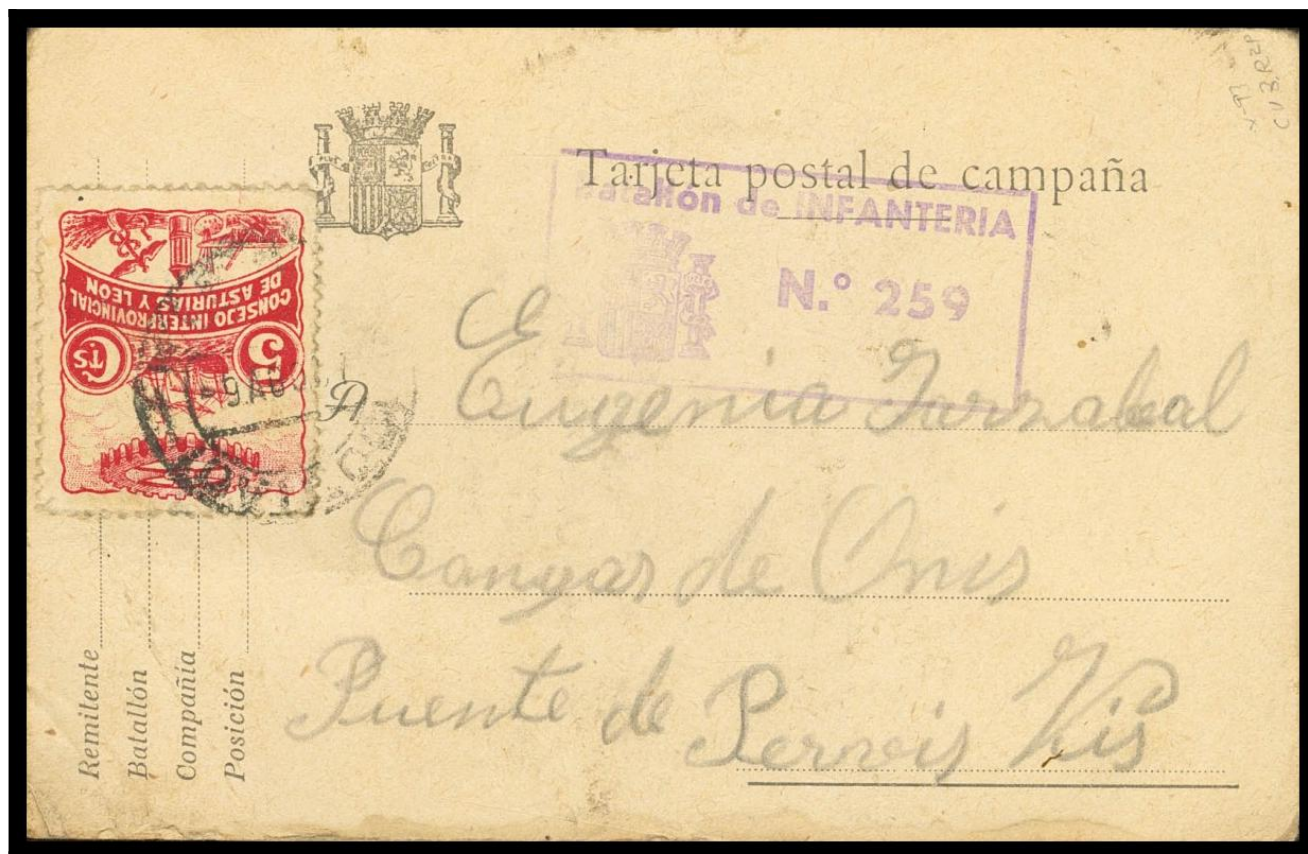 Tarjeta postal de campaña
Batallón de INFANTERIA
N.° 259
CONSEJO INTERPROVINCIAL
DE ASTURIAS Y LEÓN
5 CTS
-9 AGO
A
Eugenia
Cangas de Onis
Puente de
Remitente
Batallón
Compañía
Posición